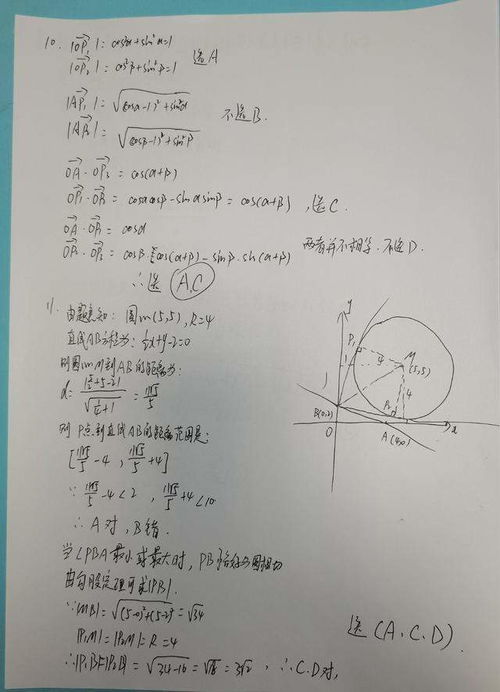 10. |OP₁| = cos²α+sin²α=1
|OP₂| = cos²β+sin²β=1 选A
|AP₁| = √(cosα-1)²+sin²α
|AP₂| = √(cosβ-1)²+sin²β 不选B.
OA · OP₃ = cos(α+β)
OP₁ · OP₂ = cosαcosβ-sinαsinβ = cos(α+β) ,选C.
OA · OP₁ = cosα
OP₂ · OP₃ = cosβ · cos(α+β) - sinβ · sin(α+β) 两者并不相等. 不选D.
∴选 A,C
11. 由题意知: 圆M(5,5), R=4
直线AB方程为: ½x+y-2=0
则圆心M到AB的距离为:
d = |5/2+5-2| / √(¼+1) = 11√5/5
则P点到直线AB的距离范围是:
[11√5/5 -4 , 11√5/5 +4]
∵ 11√5/5 -4<2 , 11√5/5 +4<10
∴ A对, B错.
当∠PBA最小或最大时, PB与圆相切
由勾股定理可求|PB|.
∵|MB| = √(5-0)²+(5-2)² = √34
|P₁M| = |P₂M| = R = 4
∴|P₁B|=|P₂B| = √34-16 = √18 = 3√2 , ∴C.D对,
选(A.C.D).
y
P₁
M
(5,5)
4
4
1
P₂
B(0,2)
0
A(4,0)
x